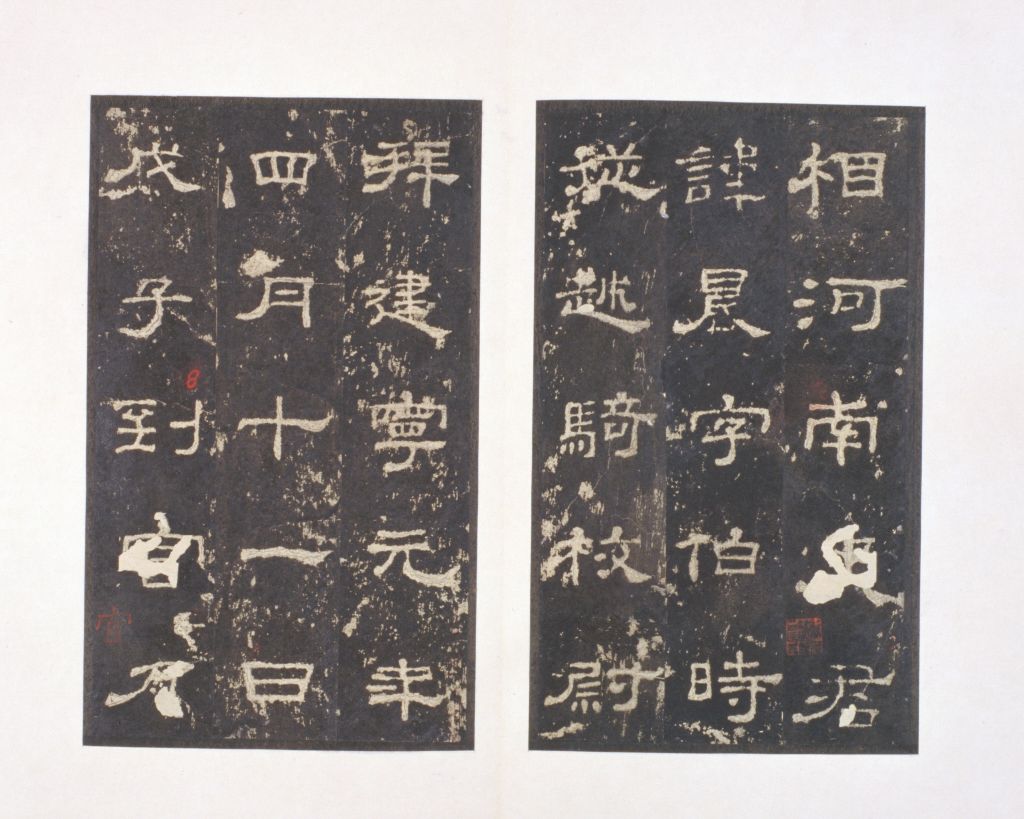 相河南史君
諱晨字伯時
從越騎校尉
拜建寧元年
四月十一日
戊子到官乃
官